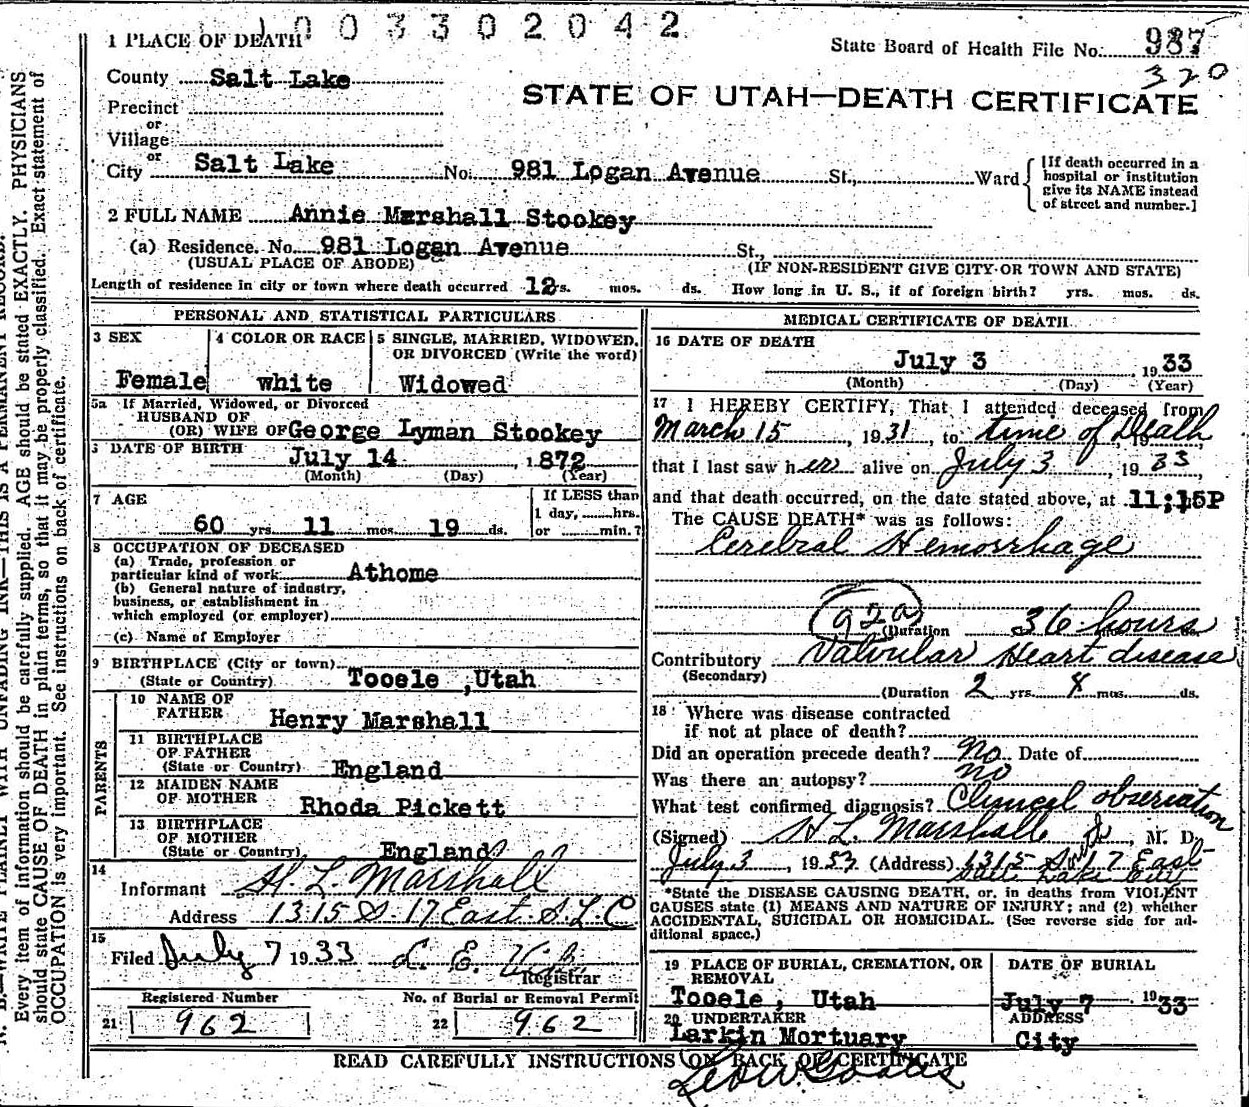 1 0 0 3 3 0 2 0 4 2
1 PLACE OF DEATH
State Board of Health File No. 987
County Salt Lake
320
STATE OF UTAH—DEATH CERTIFICATE
Precinct
or
Village
or
City Salt Lake No. 981 Logan Avenue St., Ward
[If death occurred in a hospital or institution give its NAME instead of street and number.]
2 FULL NAME Annie Marshall Stookey
(a) Residence. No. 981 Logan Avenue St.,
(USUAL PLACE OF ABODE) (IF NON-RESIDENT GIVE CITY OR TOWN AND STATE)
Length of residence in city or town where death occurred 12 yrs. mos. ds. How long in U. S., if of foreign birth? yrs. mos. ds.
PERSONAL AND STATISTICAL PARTICULARS
3 SEX
Female
4 COLOR OR RACE
white
5 SINGLE, MARRIED, WIDOWED, OR DIVORCED (Write the word)
Widowed
5a If Married, Widowed, or Divorced
HUSBAND OF
(OR) WIFE OF George Lyman Stookey
6 DATE OF BIRTH July 14 1872
(Month) (Day) (Year)
7 AGE
60 yrs. 11 mos. 19 ds.
If LESS than
1 day, hrs.
or min.?
8 OCCUPATION OF DECEASED
(a) Trade, profession or
particular kind of work Athome
(b) General nature of industry,
business, or establishment in
which employed (or employer)
(c) Name of Employer
9 BIRTHPLACE (City or town)
(State or Country) Tooele ,Utah
PARENTS
10 NAME OF
FATHER Henry Marshall
11 BIRTHPLACE
OF FATHER
(State or Country) England
12 MAIDEN NAME
OF MOTHER Rhoda Pickett
13 BIRTHPLACE
OF MOTHER
(State or Country) England
14
Informant H. L. Marshall
Address 1315 S. 17 East S. L. C
15
Filed July 7 1933 L. E.
Registrar
Registered Number
21 962
No. of Burial or Removal Permit
22 962
MEDICAL CERTIFICATE OF DEATH
16 DATE OF DEATH
July 3 1933
(Month) (Day) (Year)
17 I HEREBY CERTIFY, That I attended deceased from
March 15, 1931, to time of Death, 19
that I last saw her alive on July 3, 1933
and that death occurred, on the date stated above, at 11;15P
The CAUSE DEATH* was as follows:
Cerebral Hemorrhage
92a
(Duration 36 hours
Contributory Valvular Heart disease
(Secondary)
(Duration 2 yrs. 8 mos. ds.
18 Where was disease contracted
if not at place of death?
Did an operation precede death? No Date of
Was there an autopsy? no
What test confirmed diagnosis? Clinical observation
(Signed) H L Marshall, M. D.
July 3, 1933 (Address) 1315 South 17 East
Salt Lake City
*State the DISEASE CAUSING DEATH, or, in deaths from VIOLENT
CAUSES state (1) MEANS AND NATURE OF INJURY; and (2) whether
ACCIDENTAL, SUICIDAL OR HOMICIDAL. (See reverse side for additional space.)
19 PLACE OF BURIAL, CREMATION, OR
REMOVAL
Tooele , Utah
DATE OF BURIAL
July 7 1933
20 UNDERTAKER
Larkin Mortuary
ADDRESS
City
READ CAREFULLY INSTRUCTIONS ON BACK OF CERTIFICATE
N. B.—WRITE PLAINLY WITH UNFADING INK—THIS IS A PERMANENT RECORD.
Every item of information should be carefully supplied. AGE should be stated EXACTLY. PHYSICIANS
should state CAUSE OF DEATH in plain terms, so that it may be properly classified. Exact statement of
OCCUPATION is very important. See instructions on back of certificate.